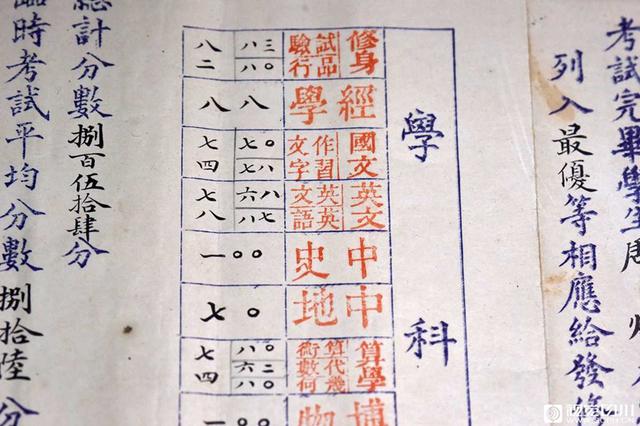 考試完畢學生周
列入最優等相應給發修
學科
修身 試驗 品行 八三 八〇 八二
經學 八八
國文 作文 習字 七〇 七八 七四
英文 英文 英語 六八 八七 七八
中史 一〇〇
中地 七〇
算學 算術 代數 幾何 八〇 六二 八〇 七四
博物
總計分數捌百伍拾肆分
臨時考試平均分數捌拾陸分